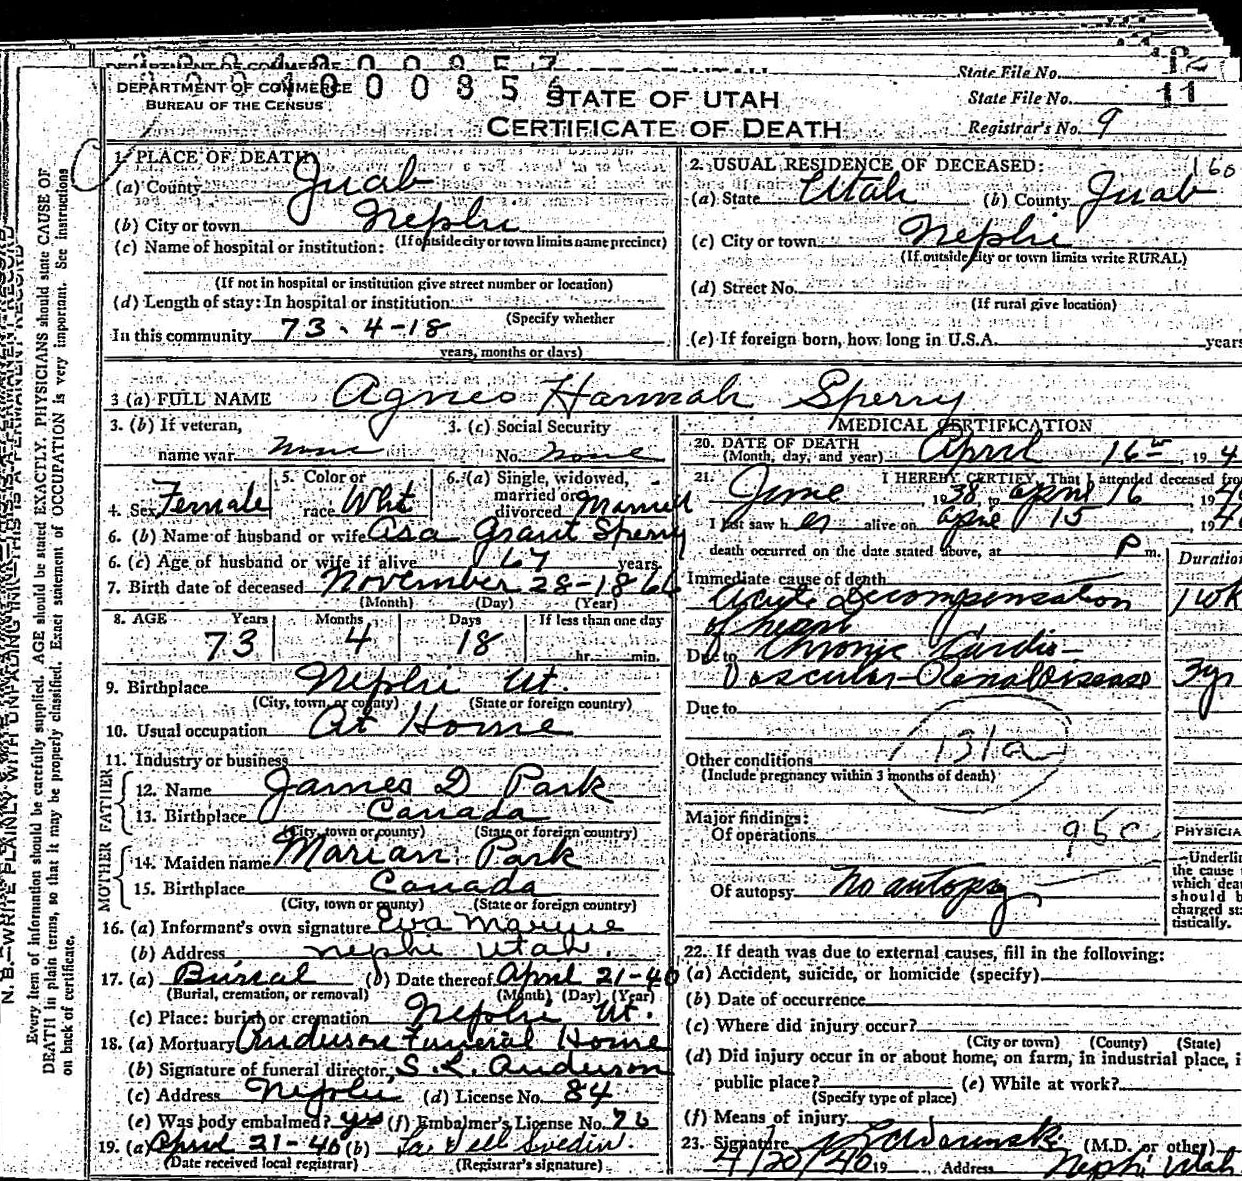 DEPARTMENT OF COMMERCE
BUREAU OF THE CENSUS
STATE OF UTAH
CERTIFICATE OF DEATH
State File No. 12
State File No. 11
Registrar's No. 9
1. PLACE OF DEATH
(a) County Juab
(b) City or town Nephi
(If outside city or town limits name precinct)
(c) Name of hospital or institution:
(If not in hospital or institution give street number or location)
(d) Length of stay: In hospital or institution
(Specify whether
In this community 73-4-18
years, months or days)
2. USUAL RESIDENCE OF DECEASED: 160
(a) State Utah (b) County Juab
(c) City or town Nephi
(If outside city or town limits write RURAL)
(d) Street No.
(If rural give location)
(e) If foreign born, how long in U.S.A. years
3 (a) FULL NAME Agnes Hannah Sperry
3. (b) If veteran, name war none
3. (c) Social Security No. none
4. Sex Female
5. Color or race Wht
6. (a) Single, widowed, married or divorced Married
6. (b) Name of husband or wife Asa Grant Sperry
6. (c) Age of husband or wife if alive 67 years
7. Birth date of deceased November 28-1866
(Month) (Day) (Year)
8. AGE Years Months Days If less than one day
73 4 18 hr. min.
9. Birthplace Nephi Ut.
(City, town, or county) (State or foreign country)
10. Usual occupation At Home
11. Industry or business
FATHER
12. Name James D Park
13. Birthplace Canada
(City, town or county) (State or foreign country)
MOTHER
14. Maiden name Marian Park
15. Birthplace Canada
(City, town or county) (State or foreign country)
16. (a) Informant's own signature Eva
(b) Address Nephi Utah.
17. (a) Burial (b) Date thereof April 21-40
(Burial, cremation, or removal) (Month) (Day) (Year)
(c) Place: burial or cremation Nephi Ut.
18. (a) Mortuary Anderson Funeral Home
(b) Signature of funeral director S. L. Anderson
(c) Address Nephi (d) License No. 84
(e) Was body embalmed? yes (f) Embalmer's License No. 76
19. (a) April 21-40 (b)
(Date received local registrar) (Registrar's signature)
MEDICAL CERTIFICATION
20. DATE OF DEATH April 16 19 4
(Month, day, and year)
21. I HEREBY CERTIFY, That I attended deceased from
June 1938 to April 16 1940
I last saw her alive on April 15, 1940
death occurred on the date stated above, at P m.
Duration
Immediate cause of death
Acute Decompensation 1 wk
of heart
Due to Chronic Cardio-
Vascular-Renal Disease 3 yr
Due to
131a
Other conditions
(Include pregnancy within 3 months of death)
Major findings:
Of operations 95c
Of autopsy No autopsy
PHYSICIA
Underlin
the cause
which dea
should b
charged sta
tistically.
22. If death was due to external causes, fill in the following:
(a) Accident, suicide, or homicide (specify)
(b) Date of occurrence
(c) Where did injury occur?
(City or town) (County) (State)
(d) Did injury occur in or about home, on farm, in industrial place, i
public place? (e) While at work?
(Specify type of place)
(f) Means of injury
23. Signature (M.D. or other)
4/20/40 19 Address Nephi Utah
N. B.—WRITE PLAINLY WITH UNFADING INK—THIS IS A PERMANENT RECORD
Every item of information should be carefully supplied. AGE should be stated EXACTLY. PHYSICIANS should state CAUSE OF
DEATH in plain terms, so that it may be properly classified. Exact statement of OCCUPATION is very important. See instructions
on back of certificate.